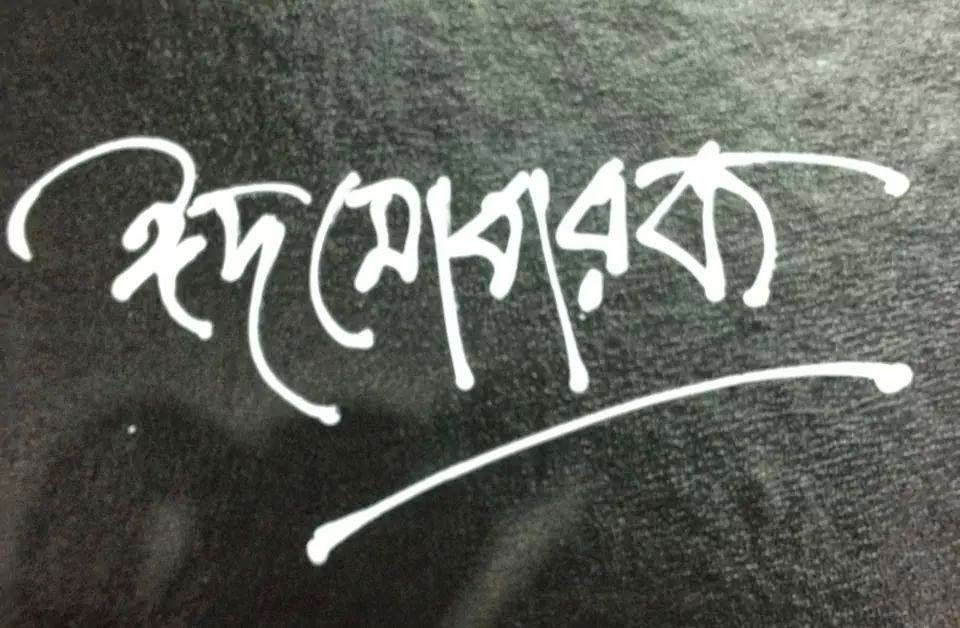 ঈদ মোবারক